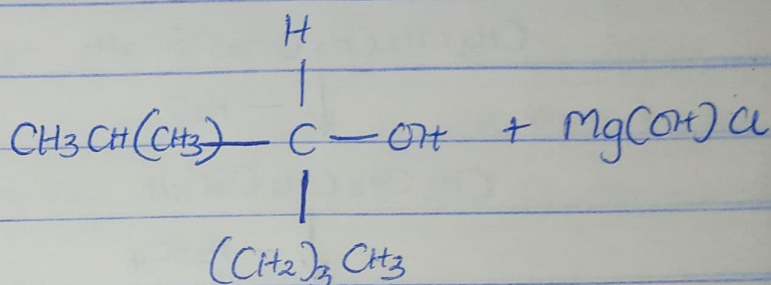 H
CH3CH(CH3)—C—OH + Mg(OH)Cl
(CH2)3CH3